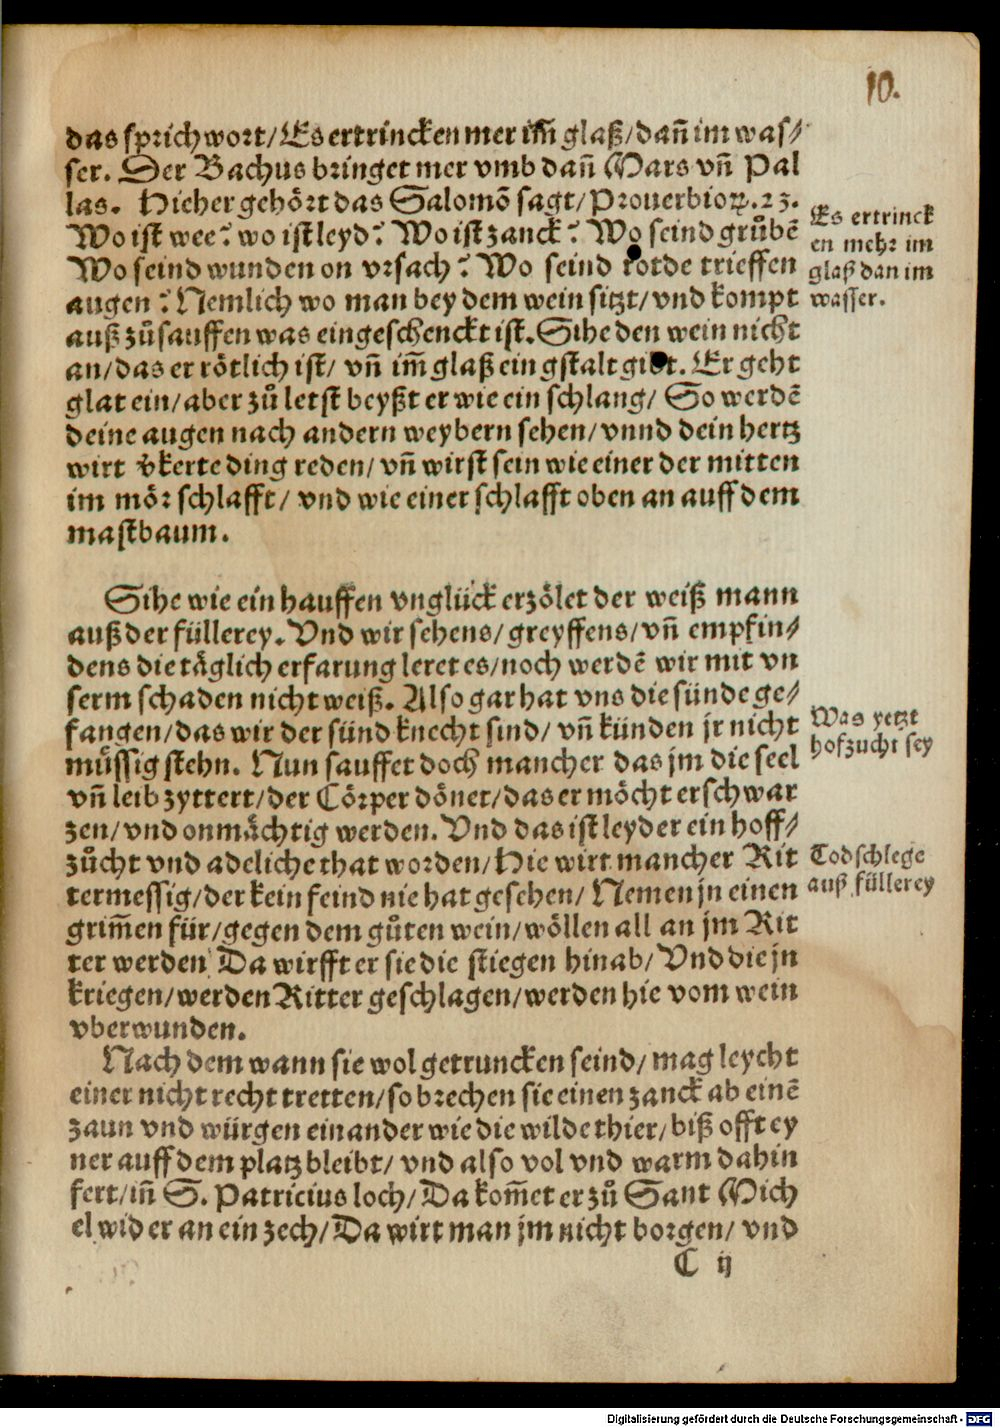 10.
das sprichwort/ Es ertrincken mer im̃ glaß/ dañ im was⸗
ser. Der Bachus bringet mer vmb dañ Mars vñ Pal
las. Hieher gehört das Salomõ sagt/ Prouerbioꝝ. 23.
Wo ist wee? wo ist leyd? Wo ist zanck? Wo seind grůbẽ
Wo seind wunden on vrsach? Wo seind rotde trieffen
augen? Nemlich wo man bey dem wein sitzt/ vnd kompt
auß zůsauffen was eingeschenckt ist. Sihe den wein nicht
an/ das er rötlich ist/ vñ im̃ glaß ein gstalt gibt. Er geht
glat ein/ aber zů letst beyßt er wie ein schlang/ So werdẽ
deine augen nach andern weybern sehen/ vnnd dein hertz
wirt v̓kerte ding reden/ vñ wirst sein wie einer der mitten
im mör schlafft/ vnd wie einer schlafft oben an auff dem
mastbaum.
Es ertrinck
en mehr im
glaß dan im
wasser.
Sihe wie ein hauffen vnglück erzölet der weiß mann
auß der füllerey. Vnd wir sehens/ greyffens/ vñ empfin⸗
dens die täglich erfarung leret es/ noch werdẽ wir mit vn
serm schaden nicht weiß. Also gar hat vns die sünde ge⸗
fangen/ das wir der sünd knecht sind/ vñ künden jr nicht
müssig stehn. Nun sauffet doch mancher das jm die seel
vñ leib zyttert/ der Cörper dönet/ das er möcht erschwar
zen/ vnd onmächtig werden. Vnd das ist leyder ein hoff⸗
zůcht vnd adeliche that worden/ Hie wirt mancher Rit
termessig/ der kein feind nie hat gesehen/ Nemen jn einen
grim̃en für/ gegen dem gůten wein/ wöllen all an jm Rit
ter werden Da wirfft er sie die stiegen hinab/ Vnd die jn
kriegen/ werden Ritter geschlagen/ werden hie vom wein
vberwunden.
Was yetzt
hofzucht sey
Todschlege
auß füllerey
Nach dem wann sie wol getruncken seind/ mag leycht
einer nicht recht tretten/ so brechen sie einen zanck ab einẽ
zaun vnd würgen einander wie die wilde thier/ biß offt ey
ner auff dem platz bleibt/ vnd also vol vnd warm dahin
fert/ iñ S. Patricius loch/ Da kom̃et er zů Sant Mich
el wider an ein zech/ Da wirt man jm nicht borgen/ vnd
C ij
Digitalisierung gefördert durch die Deutsche Forschungsgemeinschaft - DFG